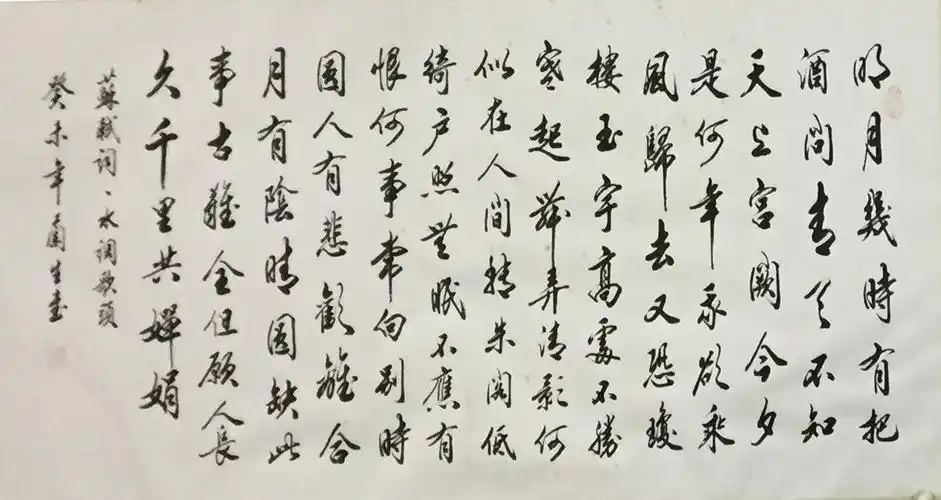 明月幾時有把
酒問青天不知
天上宫闕今夕
是何年我欲乘
風歸去又恐瓊
樓玉宇高處不勝
寒起舞弄清影何
似在人間轉朱閣低
綺户照無眠不應有
恨何事常向别時
圆人有悲歡離合
月有陰晴圆缺此
事古難全但願人長
久千里共嬋娟
蘇軾詞、水調歌頭
癸未年蘭生書